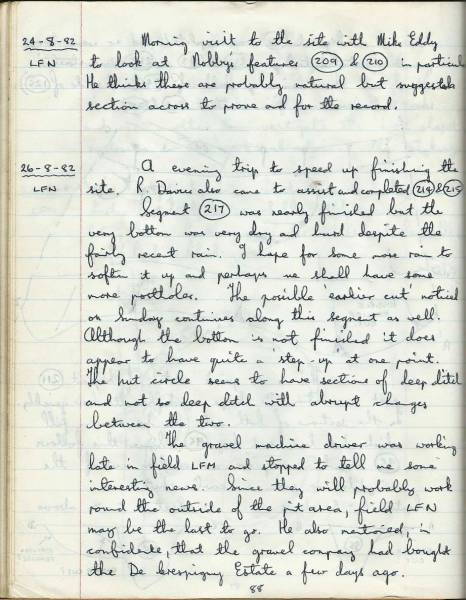 24-8-82 Morning visit to the site with Mike Eddy
LFN to look at Nobby's features 209 & 210 in particular
He thinks these are probably natural but suggested
section across to prove and for the record.
26-8-82 A evening trip to speed up finishing the
LFN site. R. Davies also came to assist and completed 214 & 215
Segment 217 was nearly finished but the
very bottom was very dry and hard despite the
fairly recent rain. I hope for some more rain to
soften it up and perhaps we shall have some
more postholes. The possible 'earlier cut' noticed
on Sunday continues along this segment as well.
Although the bottom is not finished it does
appear to have quite a 'step-up' at one point.
The hut circle seems to have sections of deep ditch
and not so deep ditch with abrupt changes
between the two.
The gravel machine driver was working
late in field LFM and stopped to tell me some
interesting news. Since they will probably work
round the outside of the pit area, field LFN
may be the last to go. He also mentioned, in
confidence, that the gravel company had bought
the De Crespigny Estate a few days ago.
88